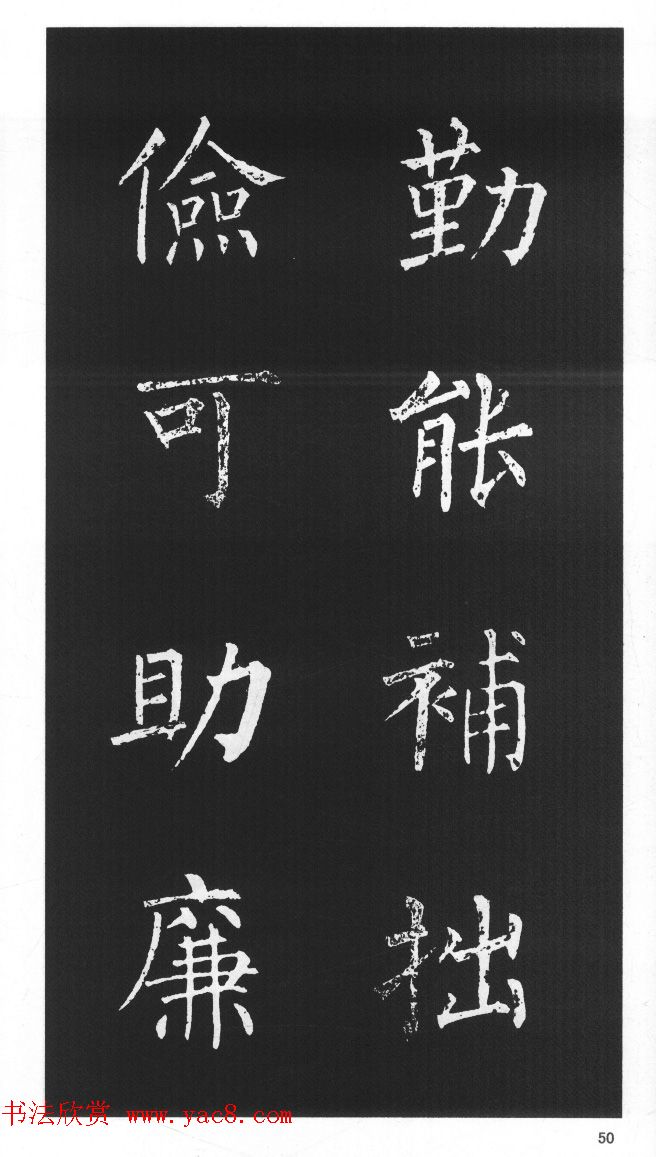 勤能補拙
儉可助廉
书法欣赏 www.yac8.com
50